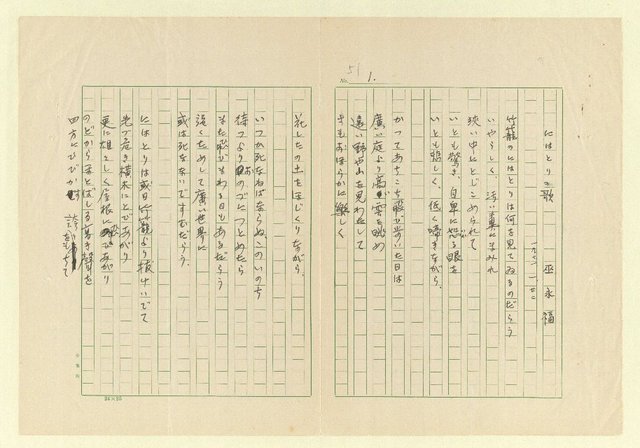 51
No 1.
にはとりの歌
巫永福
一九七一、一、二〇
竹籠のにはとりは何を見てゐるのだらう
いやらしく、浮い糞にまみれ
狭い中にとじこめられて
いとも驚き、自卑に怒る眼を
いとも悲しく、低く啼きながら、
かつてあちこち飛び歩いた日は
廣い庭より高い雲を眺め
遠い野や山を見わたして
さもおほらかに楽しく
花したの土をほじくりながら、
いつか死なねばならぬこのいのち
待つより自のつとめたら
また歌はれる日もあるだらう
強くためして廣い世界に
或は死なないですむだらう、
にはとりは或日竹籠より抜けいでて
先づ危き横木にとびあがり
更に雄々しく屋根にとびあがり
のどからほとばしる高き聲を
四方にひびかせ 誇をもちて
24×25